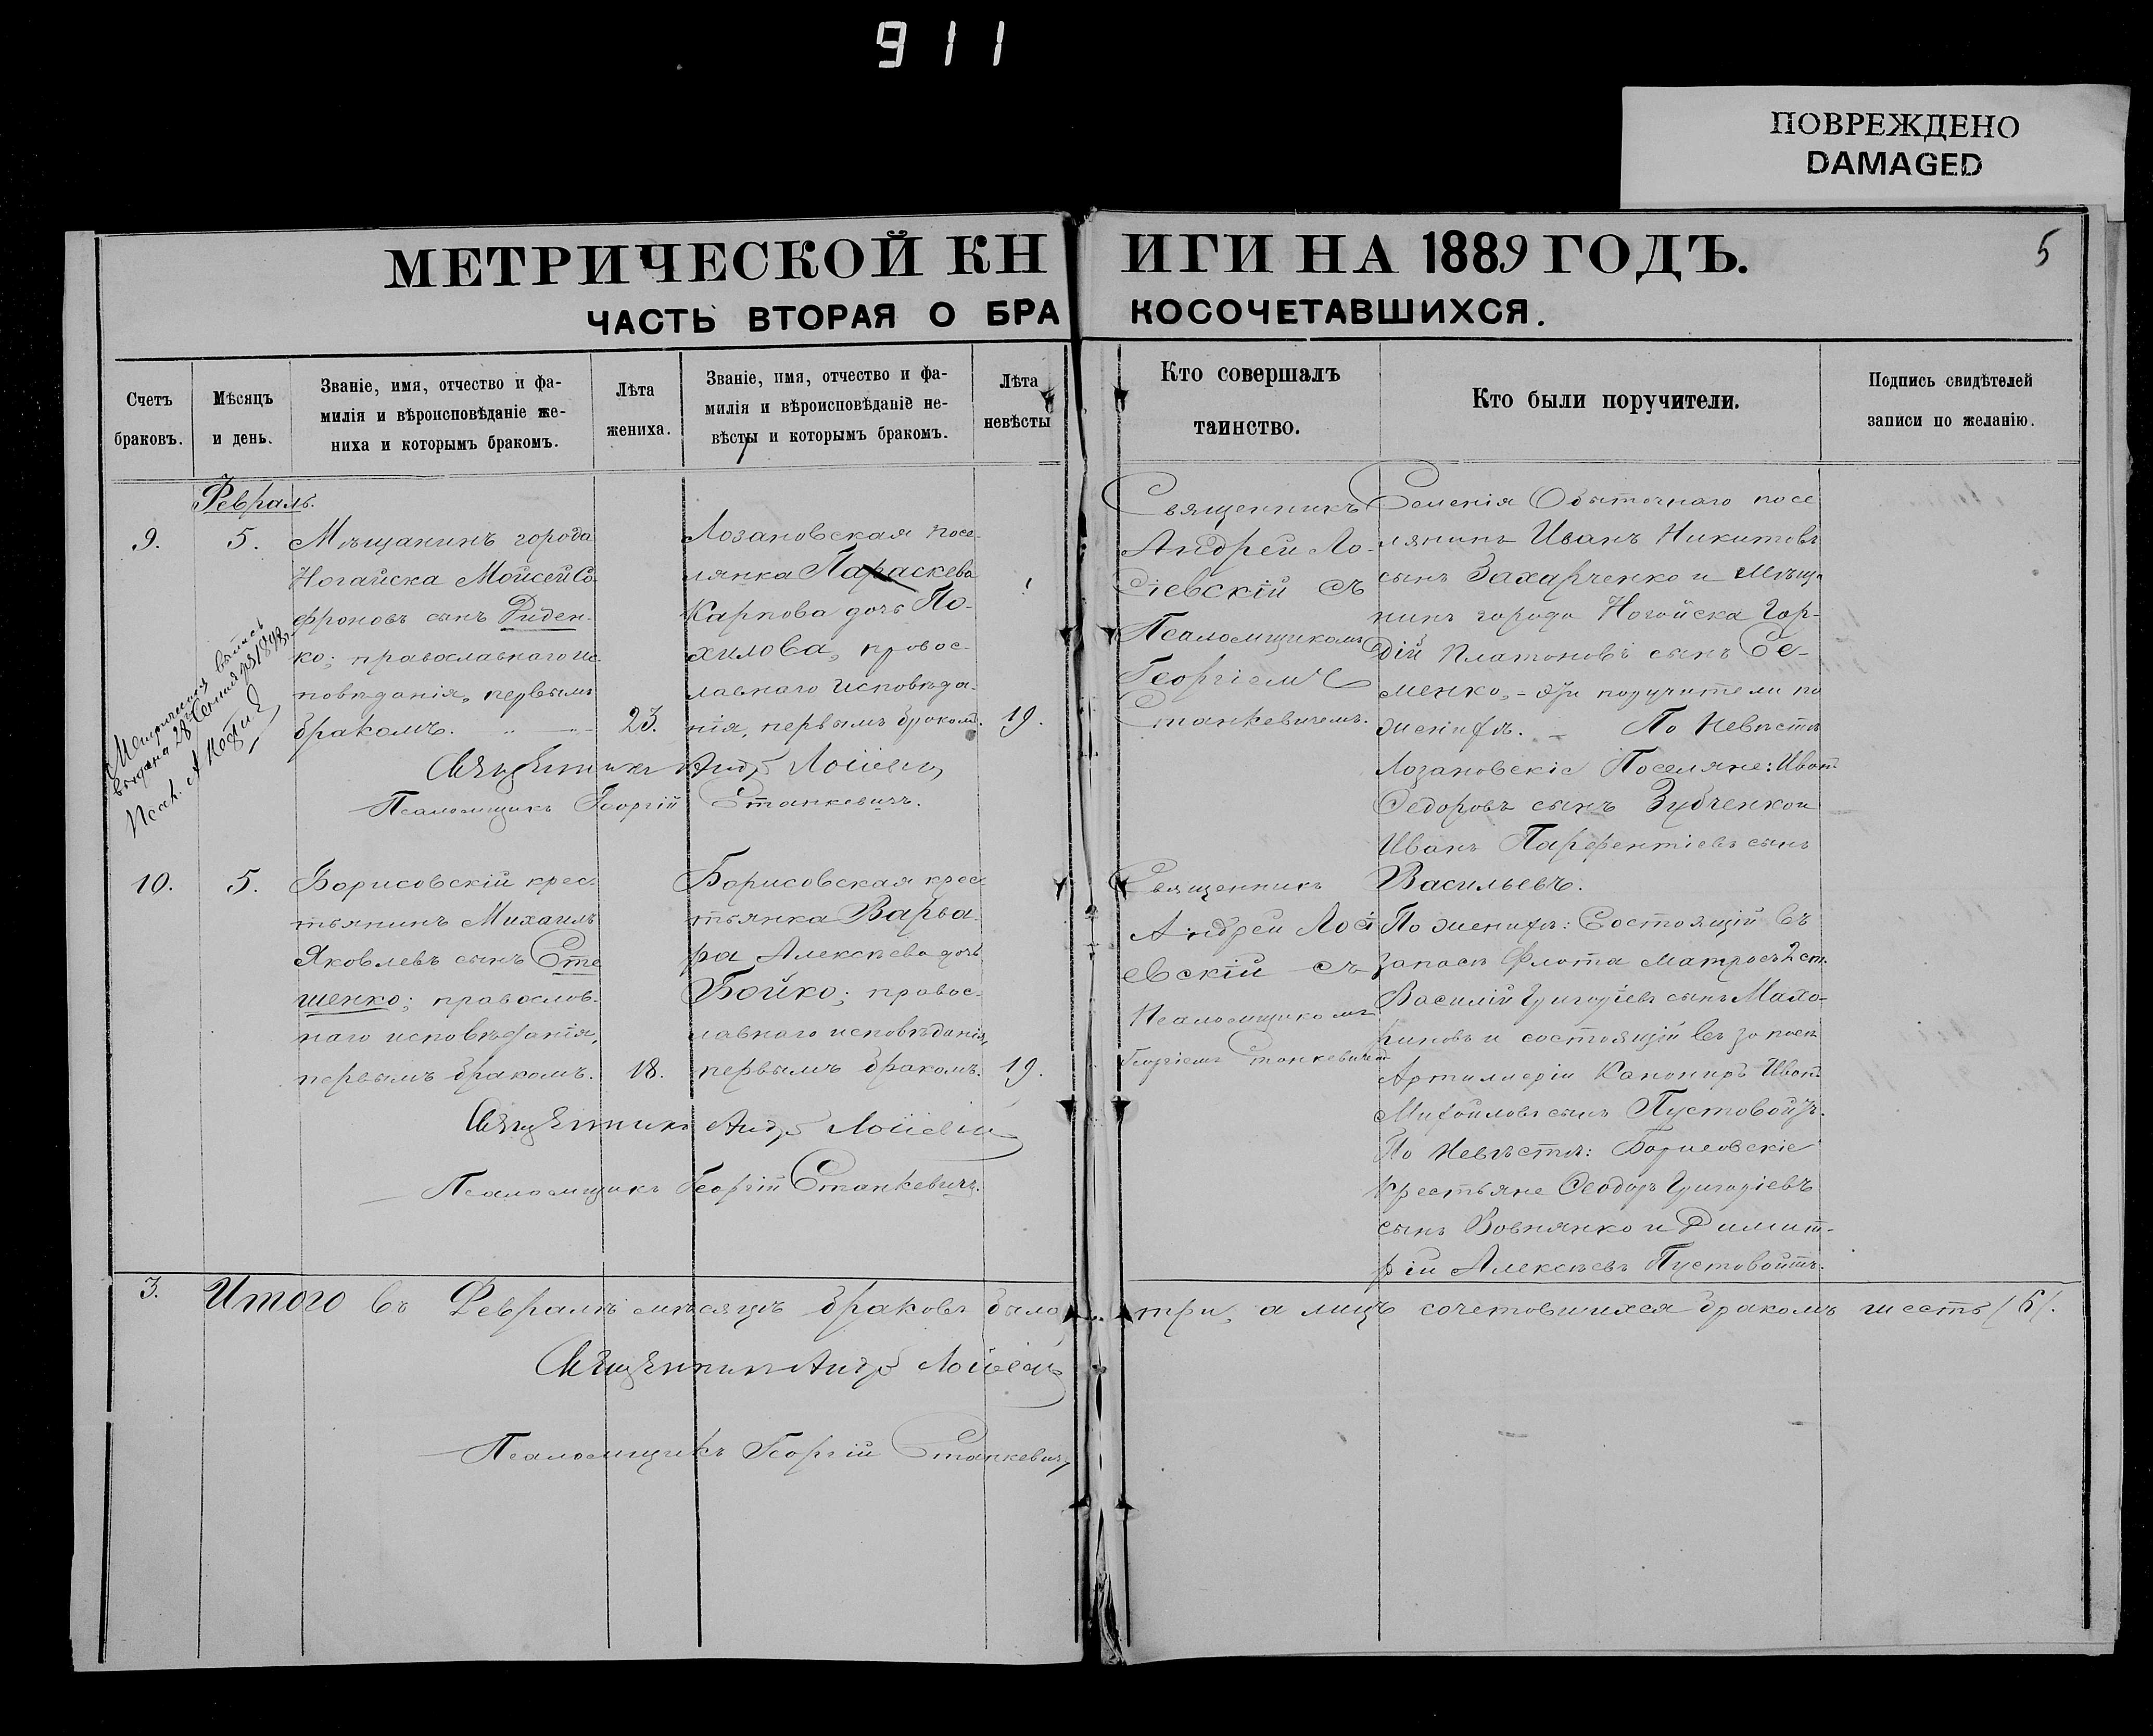 911
ПОВРЕЖДЕНО
DAMAGED
МЕТРИЧЕСКОЙ КНИГИ НА 1889 ГОДЪ.
5
ЧАСТЬ ВТОРАЯ О БРАКОСОЧЕТАВШИХСЯ.
Счетъ
браковъ.
Мѣсяцъ
и день.
Званіе, имя, отчество и фа-
милія и вѣроисповѣданіе же-
ниха и которымъ бракомъ.
Лѣта
жениха.
Званіе, имя, отчество и фа-
милія и вѣроисповѣданіе не-
вѣсты и которымъ бракомъ.
Лѣта
невѣсты
Кто совершалъ
таинство.
Кто были поручители.
Подпись свидѣтелей
записи по желанію.
Февраль.
9.
5.
Мѣщанинъ города
Ногайска Мойсей Со
фроновъ сынъ Риден-
ко; православнаго ис-
повѣданія, первымъ
бракомъ.
23.
Лозановская посе-
лянка Параскева
Карпова дочь По-
хилова, правос-
лавнаго исповѣда-
нія, первымъ бракомъ.
19.
Священникъ
Андрей Ло-
сіевскій съ
Псаломщикомъ
Георгіемъ
Станкевичемъ.
Селенія Обыточнаго посе
лянинъ Иванъ Никитовъ
сынъ Захарченко и Мѣща
нинъ города Ногайска Гор-
дій Платоновъ сынъ Се-
менко, - эти поручители по
женихѣ. - По Невѣстѣ
Лозановскіе Поселяне: Иванъ
Федоровъ сынъ Зубченко и
Иванъ Парфентіевъ сынъ
Васильевъ.
Метрическая выпись
выдана 28 1898 г.
Священникъ Андр Лосіевскій
Псаломщикъ Георгій Станкевичъ.
10.
5.
Борисовскій крес-
тьянинъ Михаилъ
Яковлевъ сынъ Сте
шенко; православ-
наго исповѣданія,
первымъ бракомъ.
18.
Борисовская крес-
тьянка Варва-
ра Алексѣева дочь
Бойко; правос-
лавнаго исповѣданія,
первымъ бракомъ.
19.
Священникъ
Андрей Лосі
евскій съ
Псаломщикомъ
Георгіемъ Станкевичемъ
По женихѣ: Состоящій въ
запасѣ флота матросъ 2 ст.
Василій Григоріевъ сынъ
и состоящій въ запасѣ
Артиллеріи Канониръ Иванъ
Михайловъ сынъ Пустовойтъ.
По Невѣстѣ: Борисовскіе
Крестьяне Феодоръ Григоріевъ
сынъ Вовнянко и Димит-
рій Алексѣевъ Пустовойтъ.
Священникъ Андр Лосіевскій
Псаломщикъ Георгій Станкевичъ.
3.
Итого въ Февралѣ мѣсяцѣ браковъ было три, а лицъ сочетовшихся бракомъ шесть /6/.
Священникъ Андр Лосіевскій
Псаломщикъ Георгій Станкевичъ